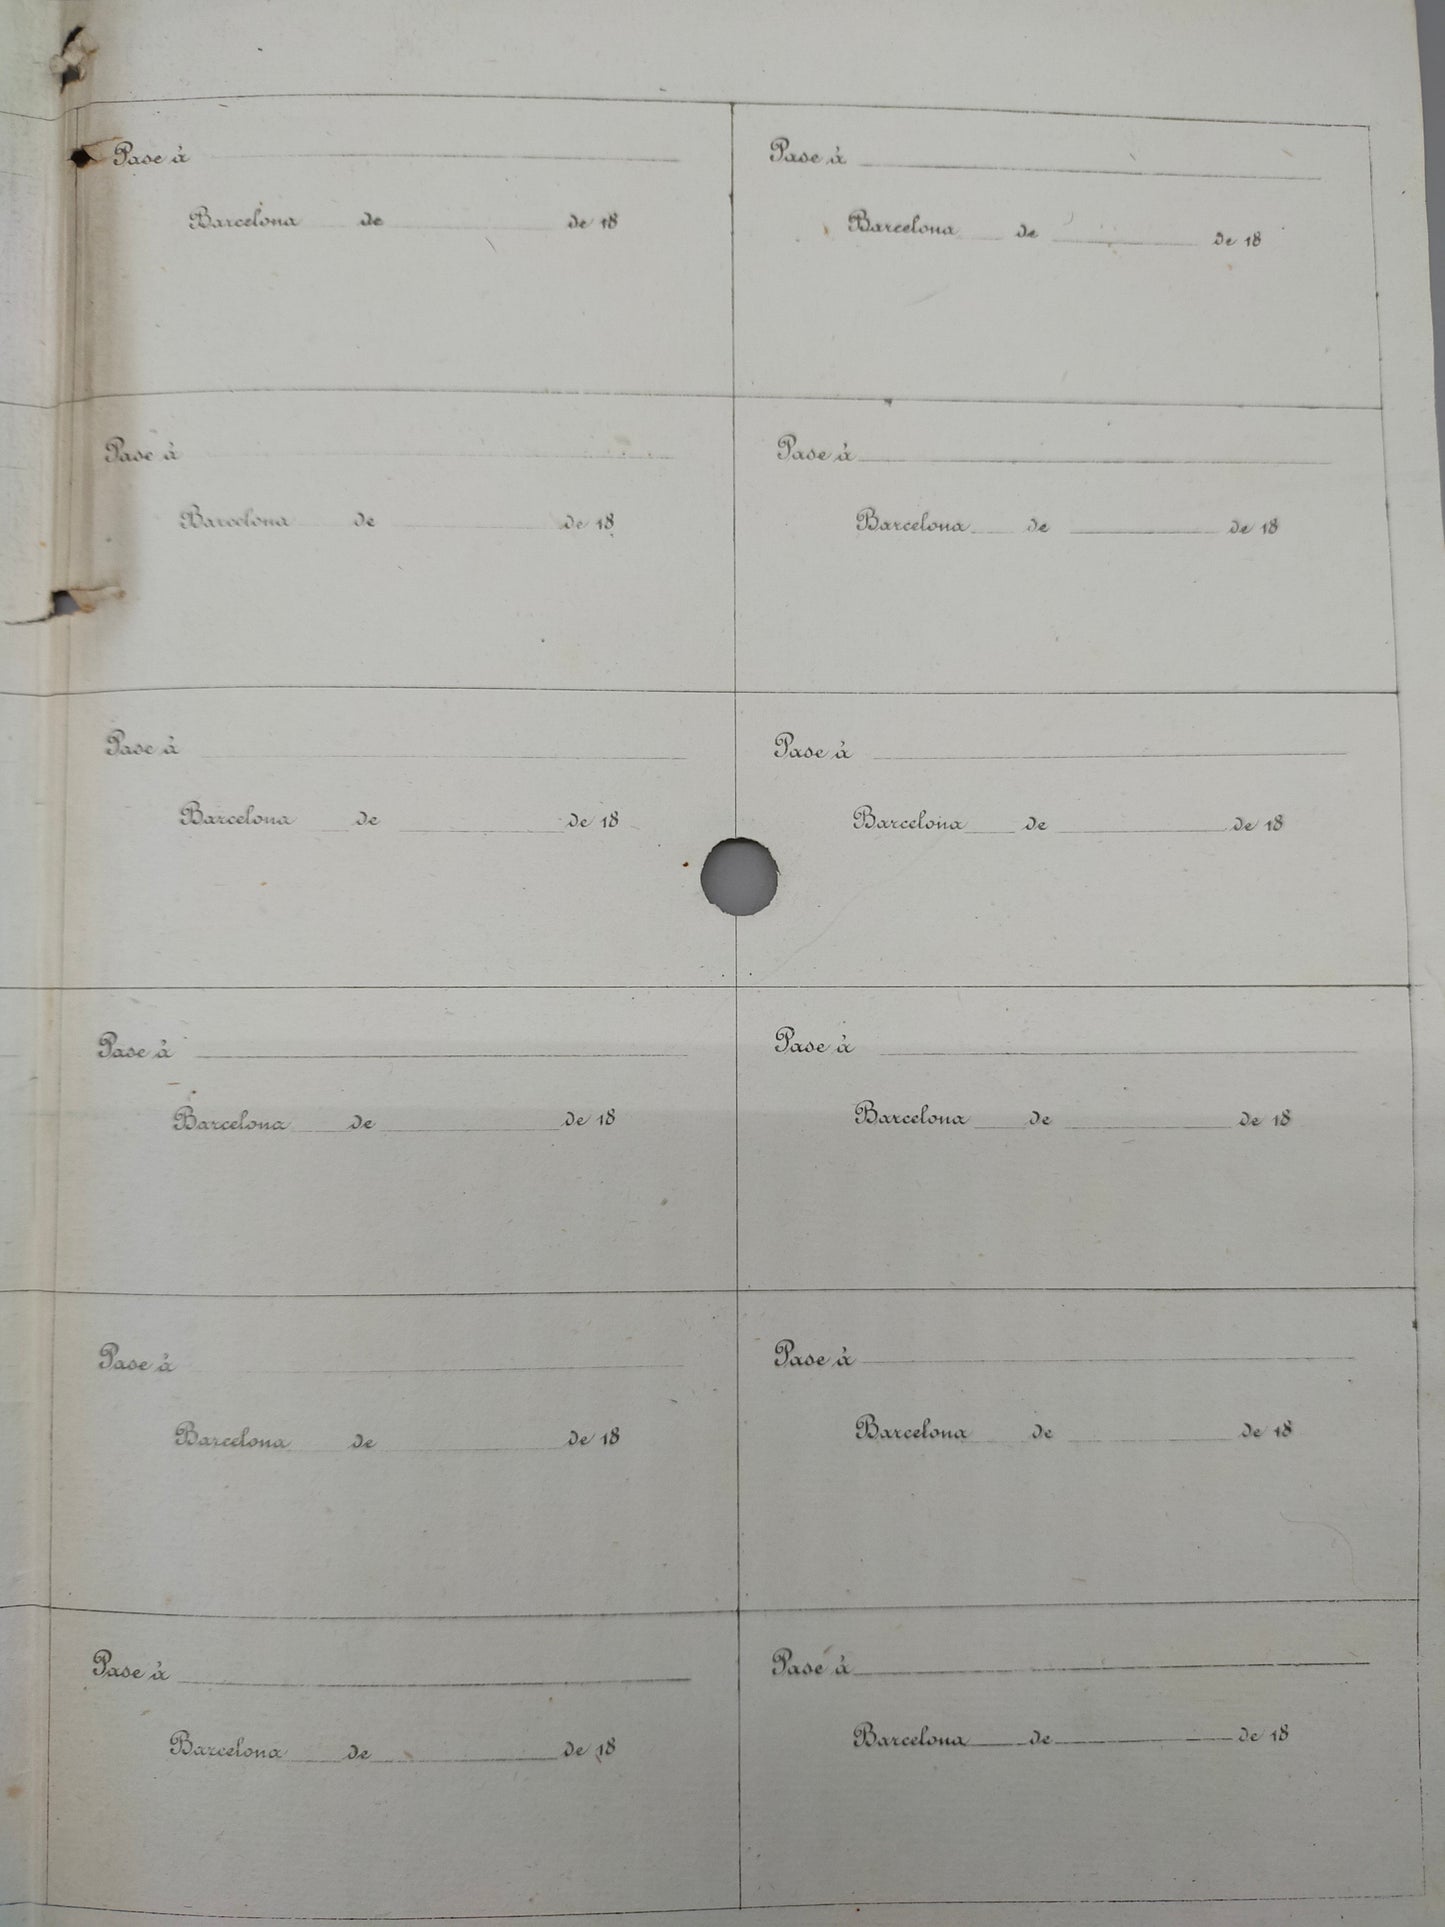 Pase á
Barcelona de de 18
Pase á
Barcelona de de 18
Pase á
Barcelona de de 18
Pase á
Barcelona de de 18
Pase á
Barcelona de de 18
Pase á
Barcelona de de 18
Pase á
Barcelona de de 18
Pase á
Barcelona de de 18
Pase á
Barcelona de de 18
Pase á
Barcelona de de 18
Pase á
Barcelona de de 18
Pase á
Barcelona de de 18